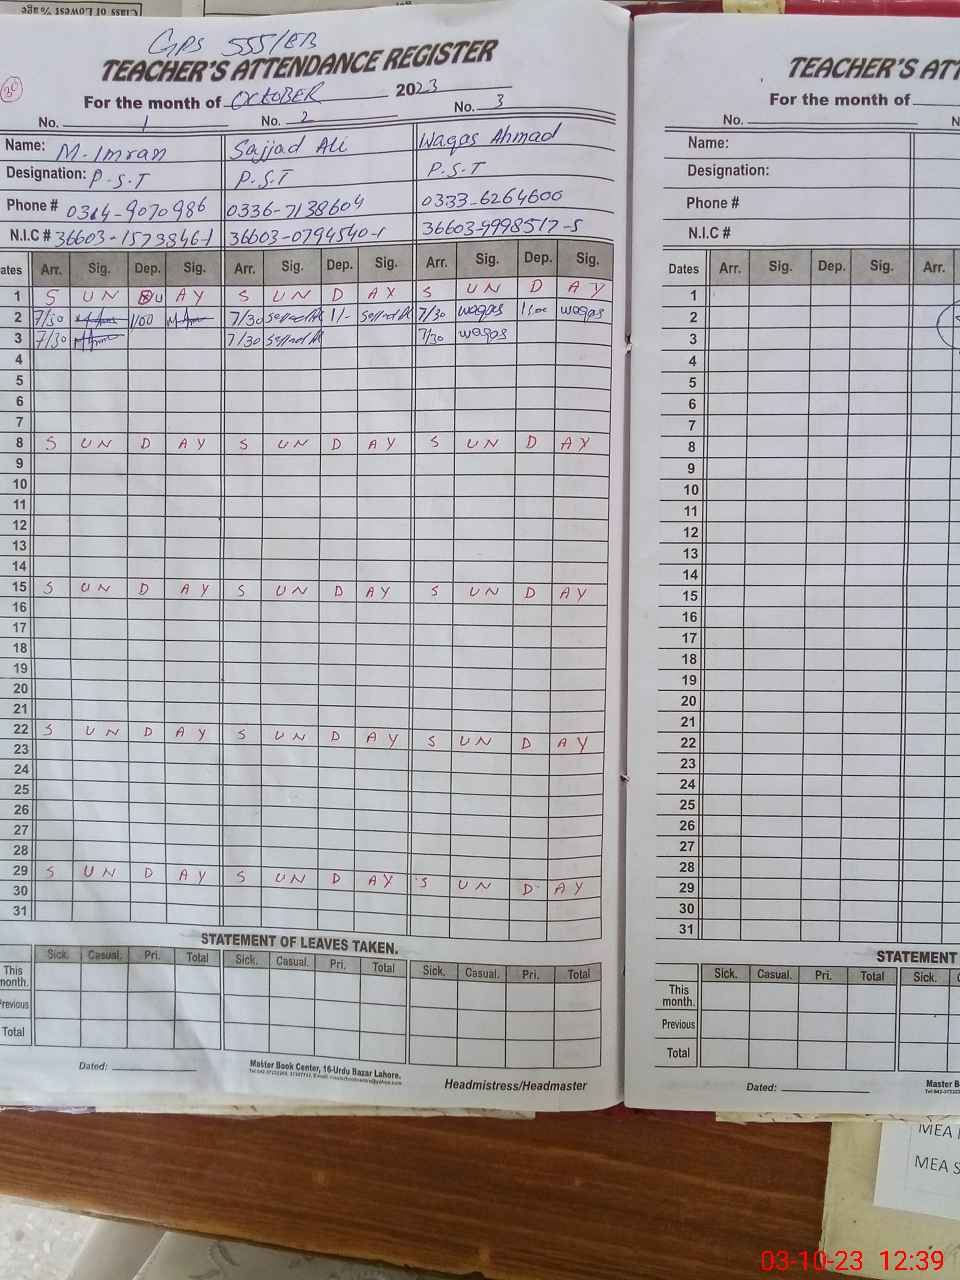 Class of Lowest %age
GPS 555/EB
TEACHER'S ATTENDANCE REGISTER
For the month of OCTOBER 2023
No. 1 No. 2 No. 3
Name: M. Imran Sajjad Ali Waqas Ahmad
Designation: P.S.T P.S.T P.S.T
Phone # 0314-9070986 0336-7138604 0333-6264600
N.I.C # 36603-1573846-1 36603-0794540-1 36603-9998517-5
Dates Arr. Sig. Dep. Sig. Arr. Sig. Dep. Sig. Arr. Sig. Dep. Sig.
1 S U N D A Y S U N D A Y S U N D A Y
2 7/30 1/00 7/30 Sajjad Ali 1/- Sajjad Ali 7/30 waqas 1:00 waqas
3 7/30 7/30 Sajjad Ali 7/30 waqas
4
5
6
7
8 S U N D A Y S U N D A Y S U N D A Y
9
10
11
12
13
14
15 S U N D A Y S U N D A Y S U N D A Y
16
17
18
19
20
21
22 S U N D A Y S U N D A Y S U N D A Y
23
24
25
26
27
28
29 S U N D A Y S U N D A Y S U N D A Y
30
31
STATEMENT OF LEAVES TAKEN.
Sick. Casual. Pri. Total Sick. Casual. Pri. Total Sick. Casual. Pri. Total
This month.
Previous
Total
Dated:
Master Book Center, 16-Urdu Bazar Lahore.
Headmistress/Headmaster
TEACHER'S ATT
For the month of
No. N
Name:
Designation:
Phone #
N.I.C #
Dates Arr. Sig. Dep. Sig. Arr.
1
2
3
4
5
6
7
8
9
10
11
12
13
14
15
16
17
18
19
20
21
22
23
24
25
26
27
28
29
30
31
STATEMENT
Sick. Casual. Pri. Total Sick. C
This month.
Previous
Total
Dated:
Master B
MEA
MEA S
03-10-23 12:39